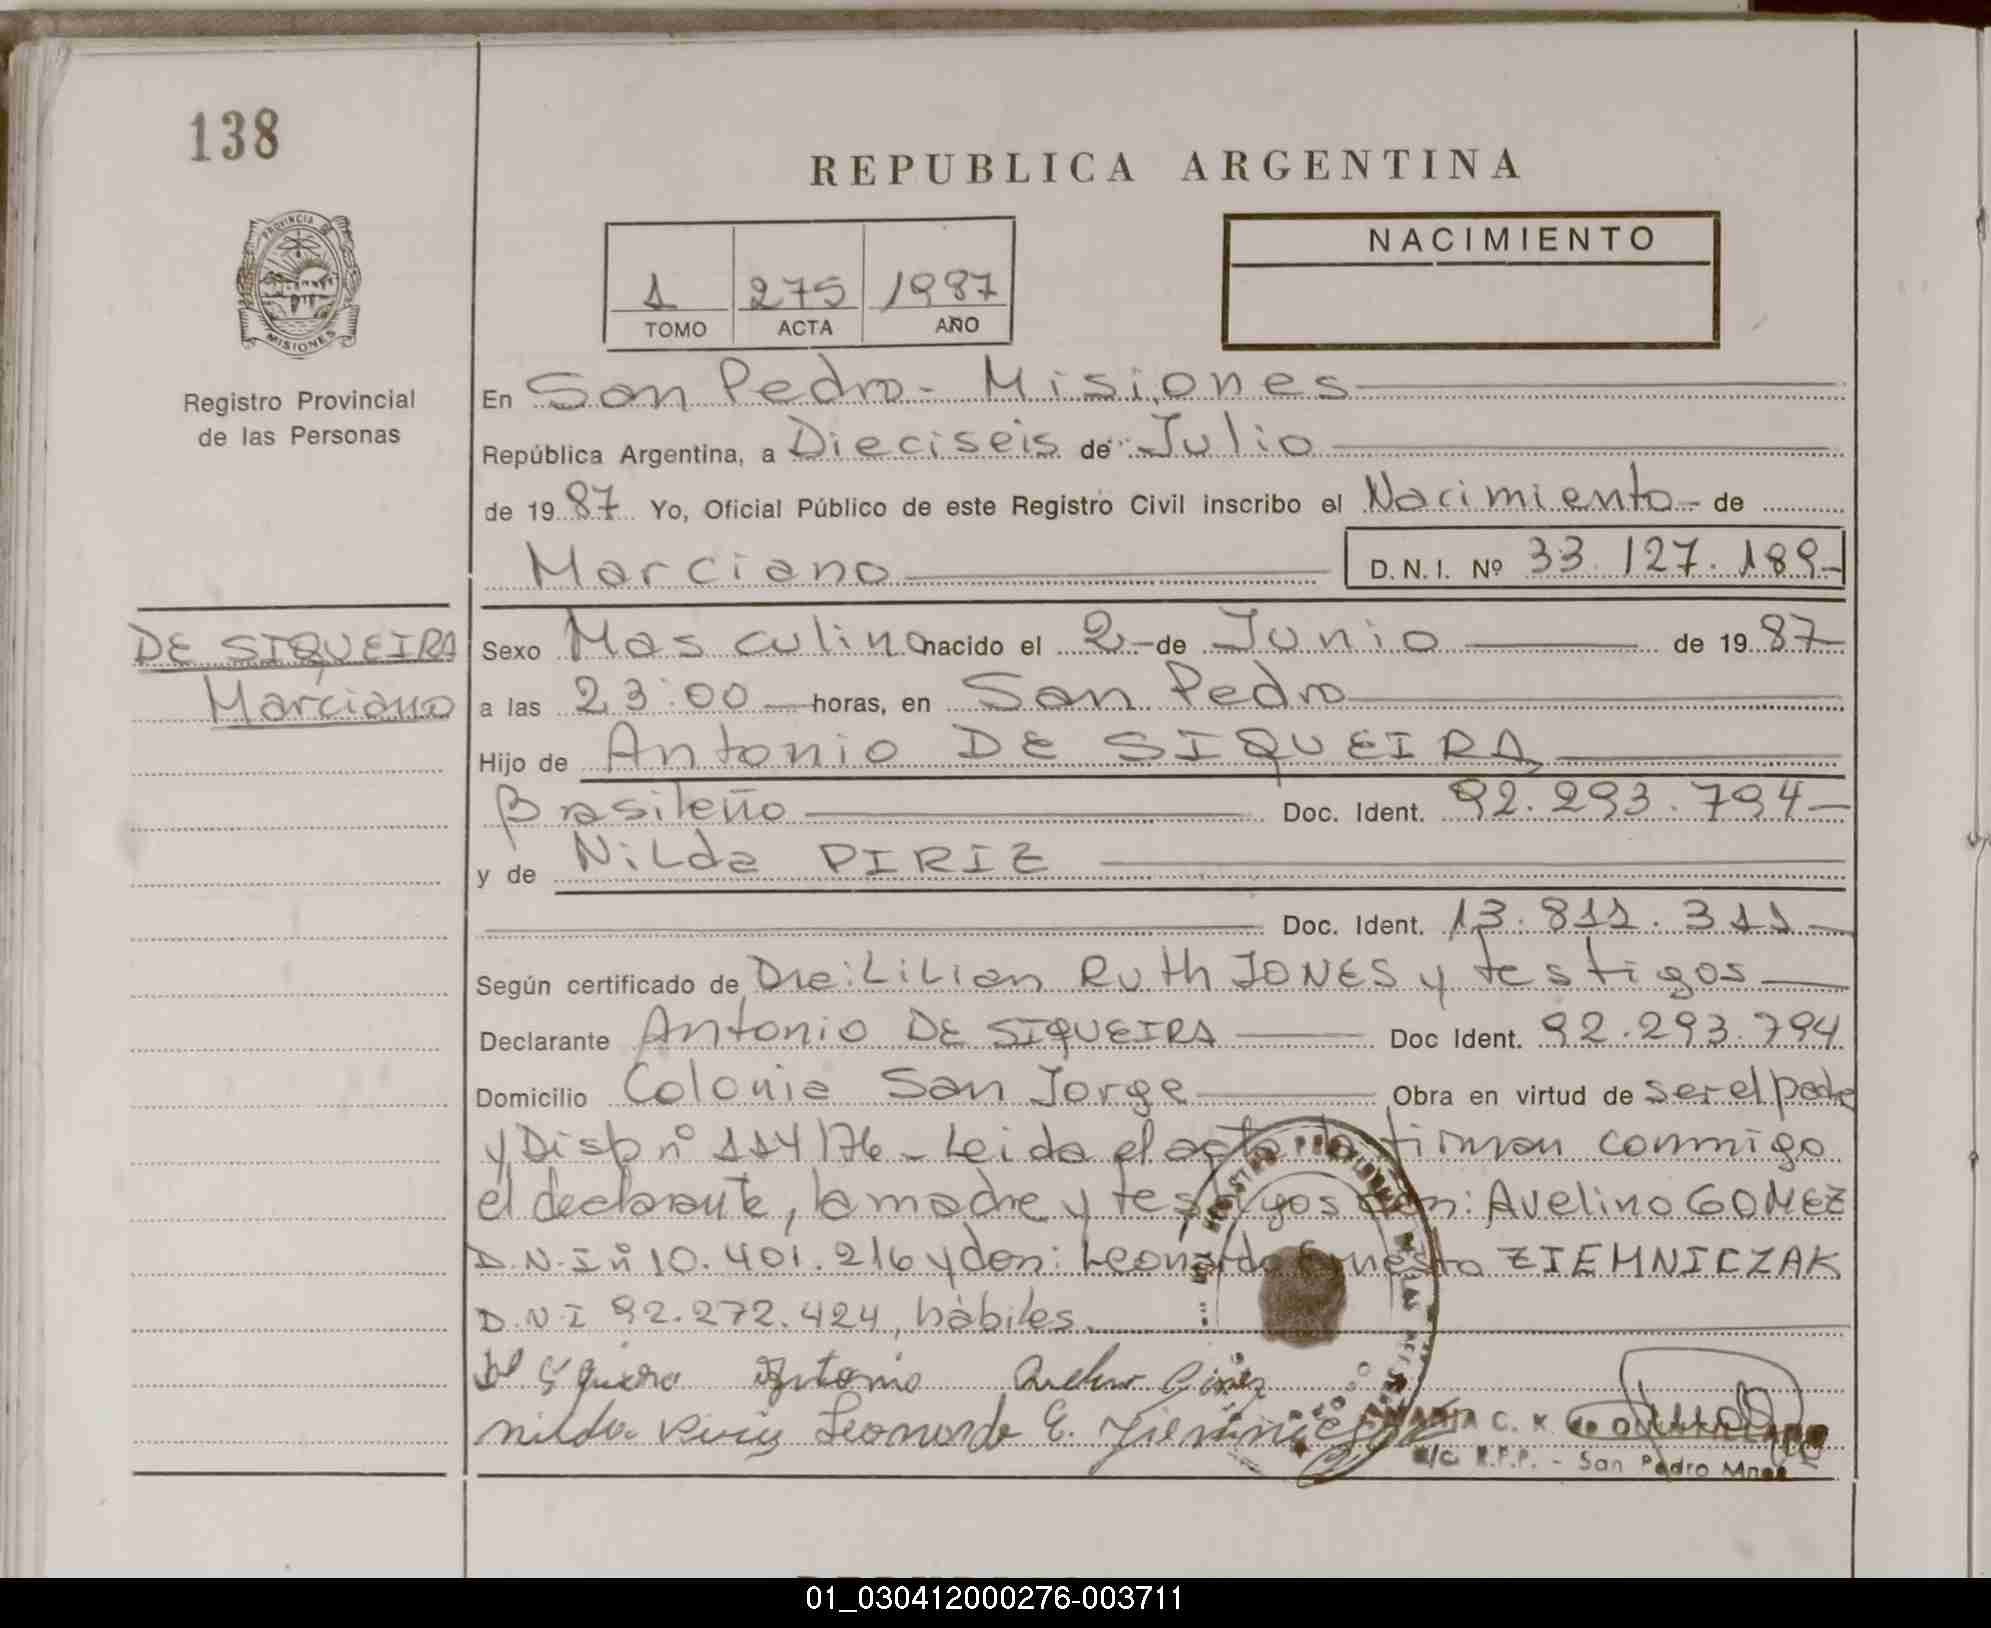 138
REPUBLICA ARGENTINA
PROVINCIA DE
MISIONES
NACIMIENTO
1 275 1987
TOMO ACTA AÑO
Registro Provincial
de las Personas
En San Pedro - Misiones
República Argentina, a Dieciseis de Julio
de 1987 Yo, Oficial Público de este Registro Civil inscribo el Nacimiento - de
Marciano D.N.I. Nº 33.127.189-
DE SIQUEIRA
Marciano
Sexo Masculino nacido el 2 - de Junio de 1987
a las 23:00 horas, en San Pedro
Hijo de Antonio DE SIQUEIRA
Brasileño Doc. Ident. 92.293.794
y de Nilda PIRIZ
Doc. Ident. 13.811.311
Según certificado de Dra: Lilian Ruth JONES y testigos
Declarante Antonio DE SIQUEIRA Doc Ident. 92.293.794
Domicilio Colonia San Jorge Obra en virtud de ser el padre
y Disp nº 114/76 - Leida el acta la firman conmigo
el declarante, la madre y testigos don: Avelino GOMEZ
D.N.I nº 10.401.216 y don: Leonardo Ernesto ZIEMNICZAK
D.N.I 92.272.424, hábiles.
Antonio
Nilda Piriz Leonardo E.
C. K.
a/c R.P.P. - San Pedro Mnes
01_030412000276-003711